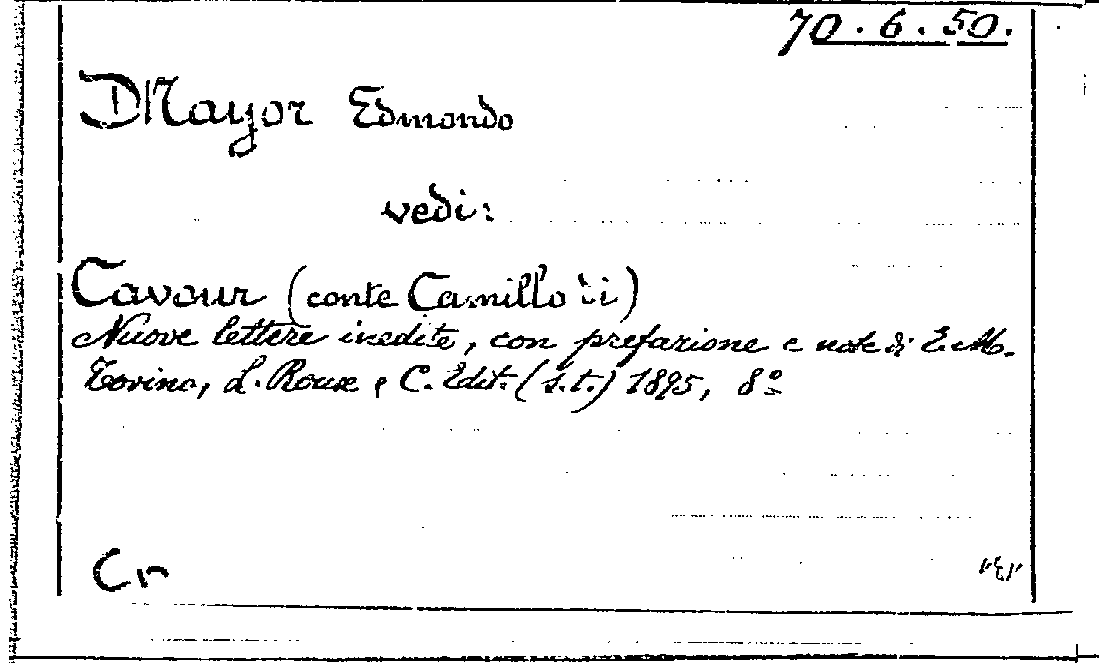 70.6.50.
Mayor Edmondo
vedi:
Cavour (conte Camillo di)
Nuove lettere inedite, con prefazione e note di E. M.
Torino, L. Roux e C. Edit. (s.t.) 1895, 8º
Cr